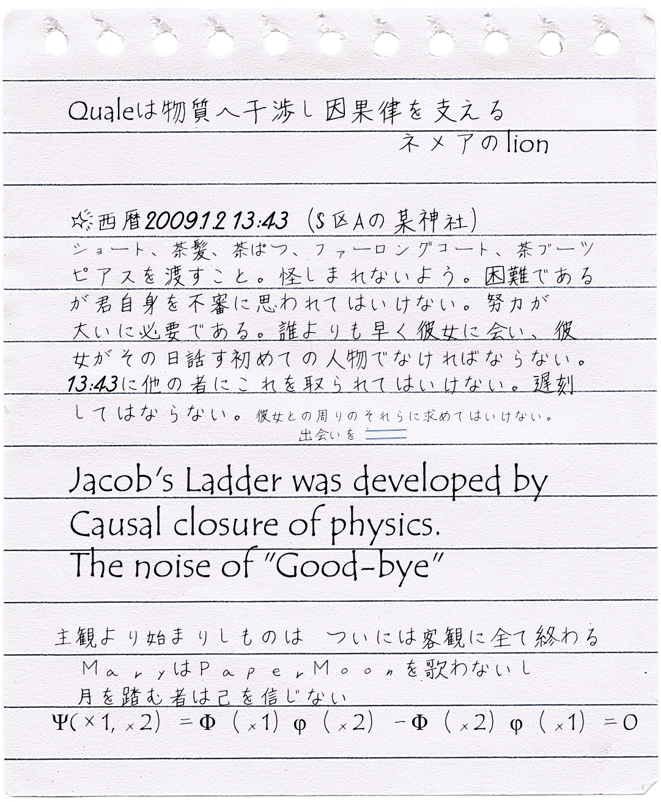 Qualeは物質へ干渉し因果律を支える
ネメアのlion
☆西暦2009.1.2 13:43 (S区Aの某神社)
ショート、茶髪、茶ぱつ、ファーロングコート、茶ブーツ
ピアスを渡すこと。怪しまれないよう。困難である
が君自身を不審に思われてはいけない。努力が
大いに必要である。誰よりも早く彼女に会い、彼
女がその日話す初めての人物でなければならない。
13:43に他の者にこれを取られてはいけない。遅刻
してはならない。彼女との周りのそれらに求めてはいけない。
出会いを
Jacob's Ladder was developed by
Causal closure of physics.
The noise of "Good-bye"
主観より始まりしものは ついには客観に全て終わる
MaryはPaperMoonを歌わないし
月を踏む者は己を信じない
Ψ(×1, ×2) =Φ (×1) φ (×2) −Φ (×2) φ (×1) =0